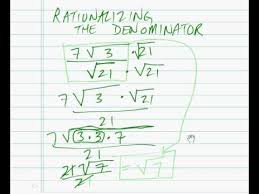 RATIONALIZING
THE DENOMINATOR
7√3 · √21
√21 · √21
7√3 · √21
21
7√(3·3)·7
21
21√7 = √7
21